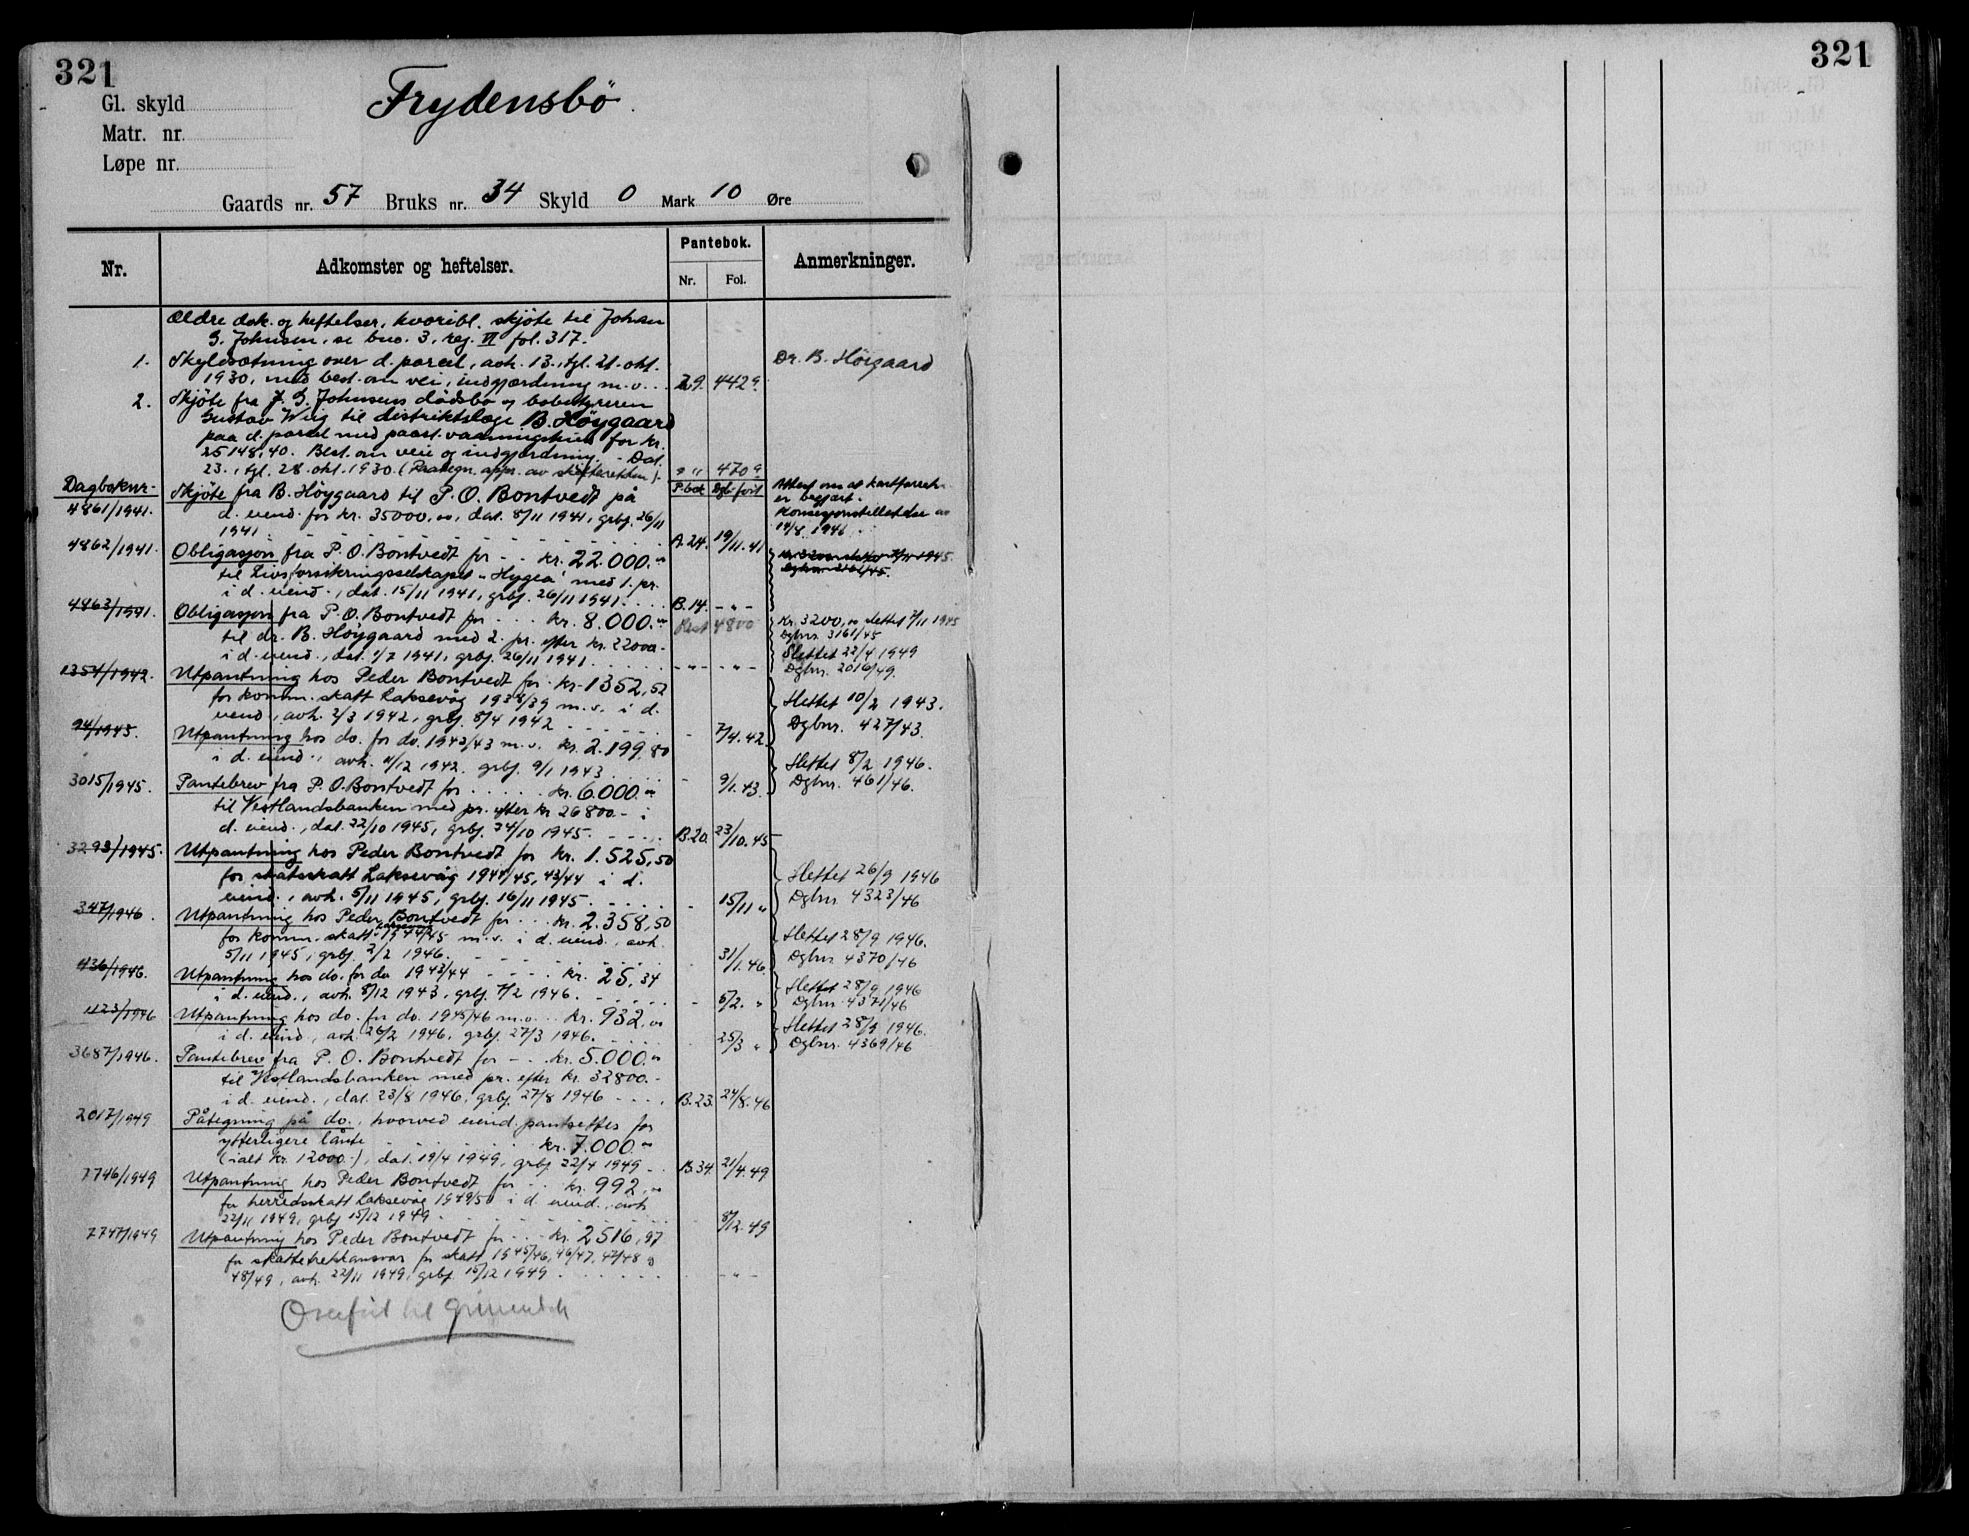 321
321
Gl. skyld
Frydensbö.
Matr. nr.
Løpe nr.
Gaards nr. 57 Bruks nr. 34 Skyld 0 Mark 10 Øre
Nr. Adkomster og heftelser. Pantebok. Anmerkninger.
Nr. Fol.
Ældre dok. og heftelser, hvoribl. skjöte til Johan
G. Johnsen, se bno. 3, reg. VI fol. 317.
1. Skyldsætning over d. parcel, avh. 13., tgl. 21. okt. Dr. B. Höigaard
1930, med best. om vei, indgjærdning m. v. 29. 442
2. Skjöte fra J. G. Johnsens dödsbo og bobestyreren
Gustav Wiig til distriktslæge B. Höygaard
paa d. parcel med paast. vaaningshus for kr.
25148,40. Best. om veie og indgjærdning. Dat.
23., tgl. 28. okt. 1930. (Paategn. appr. av skifteretten). " " 470
Dagboknr. P.bok Dgb.fört
4861/1941. Skjöte fra B. Höygaard til P. O. Bontvedt på Attest om at kartforretn.
d. eiend. for kr. 35000,00, dat. 8/11 1941, grbf. 26/11 er begjært.
1941 A.24. 19/11.41 Konsesjonstillatelse av
14/8 1941
4862/1941. Obligasjon fra P. O. Bontvedt for kr. 22.000.00
til Livsforsikringsselskapet "Hygea" med 1. pr.
i d. eiend., dat. 15/11 1941, grbf. 26/11 1941. B.14. - " -
4863/1941. Obligasjon fra P. O. Bontvedt for kr. 8.000.00 Rest 4800 Kr. 3200,00 slettet 7/11 1945
til dr. B. Höygaard med 2. pr. efter kr. 22000.- Dgbnr. 3161/45
i d. eiend., dat. 1/7 1941, grbf. 26/11 1941. - " - - " - Slettet 22/4 1949
Dgbnr. 2016/49.
1354/1942. Utpantning hos Peder Bontvedt for kr. 1352,52
for komm. skatt Laksevåg 1938/39 m. v. i d. Slettet 10/2 1943.
eiend., avh. 2/3 1942, grbf. 8/4 1942 - 7/4.42. Dgbnr. 427/43.
94/1943. Utpantning hos do. for do. 1942/43 m. v. kr. 2.199,80
i d. eiend., avh. 11/12 1942. grbf. 9/1 1943 - 9/1.43. Slettet 8/2 1946.
Dgbnr. 461/46.
3015/1945. Pantebrev fra P. O. Bontvedt for kr. 6.000.00
til Vestlandsbanken med pr. efter kr 26800.- i
d. eiend., dat. 22/10 1945, grbf. 24/10 1945. B.20. 23/10.45
3293/1945. Utpantning hos Peder Bontvedt for kr. 1.525,50
for skatsskatt Laksevåg 1944/45, 43/44 i d. Slettet 26/9 1946
eiend., avh. 5/11 1945, grbf. 16/11 1945. - 15/11 " Dgbnr. 4323/46
347/1946. Utpantning hos Peder Bontvedt for kr. 2.358,50
for komm. skatt Laksevåg 1944/45 m. v. i d. eiend., avh. Slettet 28/9 1946.
5/11 1945, grbf. 2/2 1946. 31/1.46. Dgbnr. 4370/46
436/1946. Utpantning hos do. for do 1943/44 kr. 25,34
i d. eiend., avh. 8/12 1943, grbf. 7/2 1946. - 5/2. " Slettet 28/9 1946
Dgbnr. 4371/46
1123/1946 Utpantning hos do. for do. 1945/46 m. v. kr. 932,00 Slettet 28/9 1946.
i d. eiend., avh. 26/2 1946, grbf. 27/3 1946. 25/3 " Dgbnr. 4369/46
3687/1946. Pantebrev fra P. O. Bontvedt for kr. 5.000.00
til Vestlandsbanken med pr. efter kr. 32800.-
i d. eiend., dat. 23/8 1946, grbf. 27/8 1946 B.23. 24/8.46
2017/1949 Påtegning på do., hvorved eiend. pantsettes for
ytterligere lånte kr. 7.000.00
(ialt kr. 12000.-), dat. 19/4 1949, grbf. 22/4 1949 B.34. 21/4.49
7746/1949 Utpantning hos Peder Bontvedt for kr. 992,00
for herredsskatt Laksevåg 1949/50 i d. eiend., avh.
22/11 1949, grbf. 15/12 1949 8/12.49
7747/1949 Utpantning hos Peder Bontvedt for kr. 2516,97
for skattetrekkansvar for skatt 1945/46, 46/47, 47/48 og
48/49, avh. 22/11 1949, grbf. 15/12 1949 - " -
Overfört til grunnbok